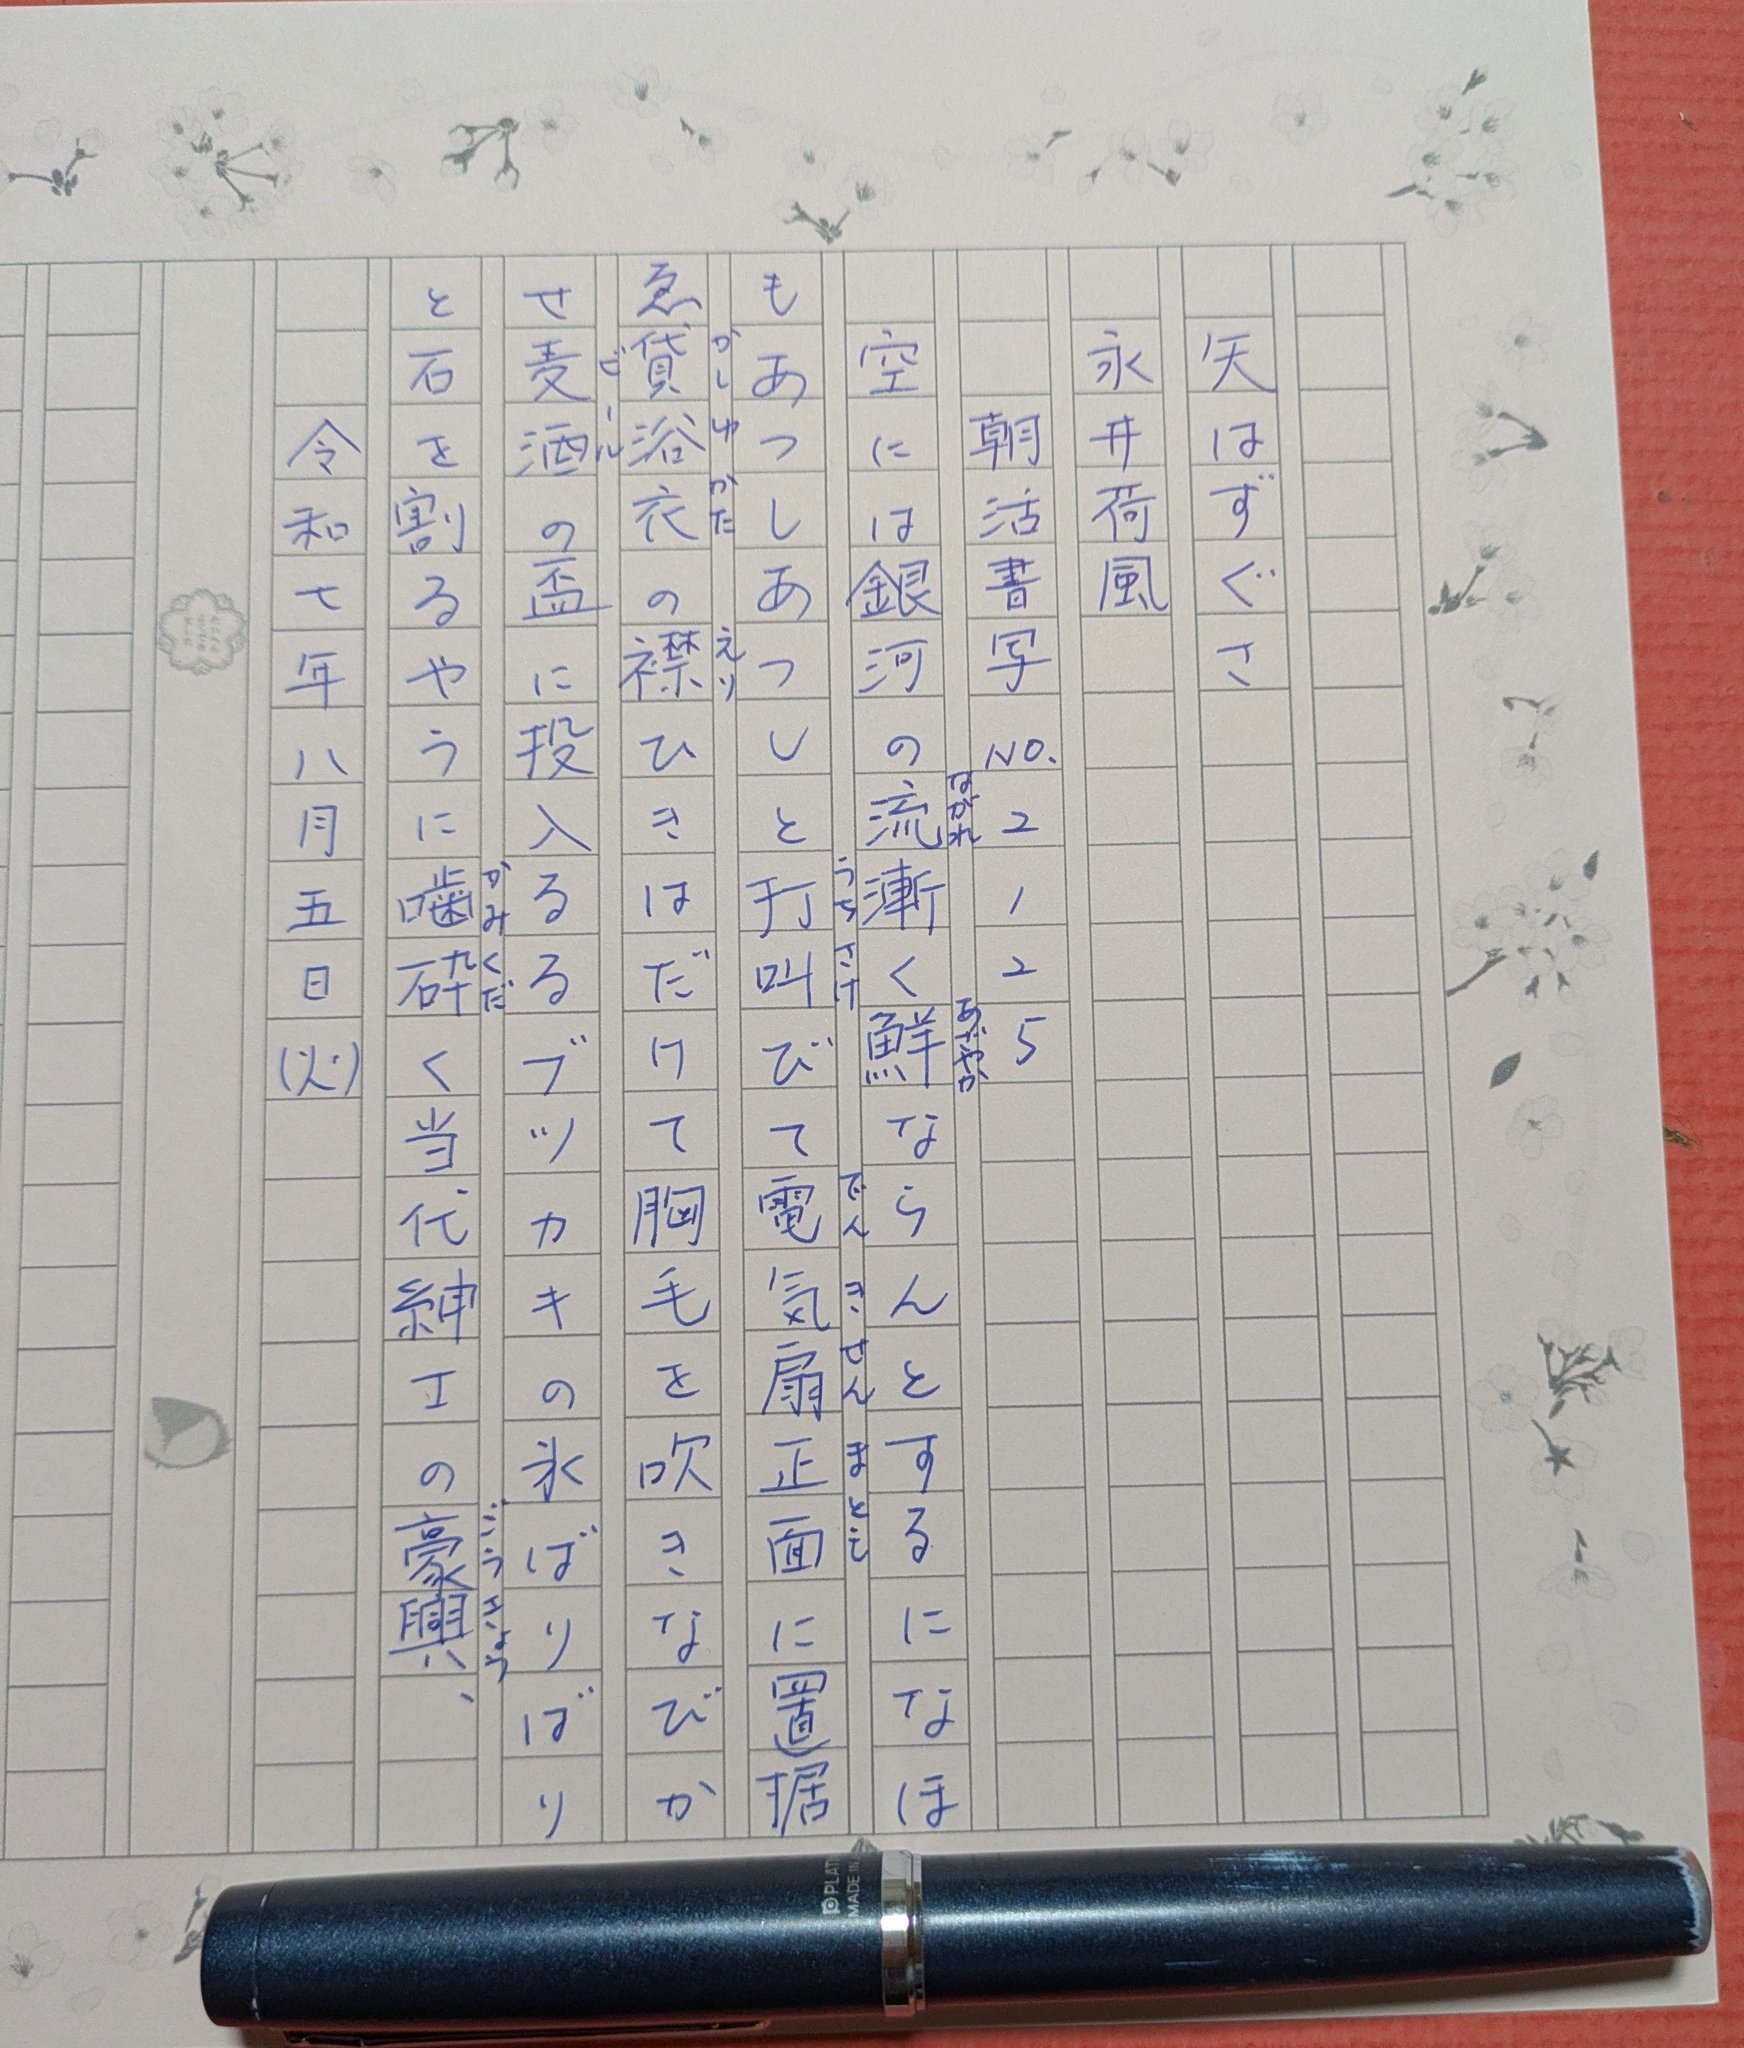 矢はずぐさ
永井荷風
朝活書写NO.2125
空には銀河の流漸く鮮ならんとするになほ
ながれ
あざやか
もあつしあつしと打叫びて電気扇正面に置据
うち
さけ
でんきせん
まとも
ゑ貸浴衣の襟ひきはだけて胸毛を吹きなびか
かしゆかた
えり
せ麦酒の盃に投入るるブツカキの氷ばりばり
ビール
と石を割るやうに噛砕く当代紳士の豪興、
かみ
くだ
ごうきょう
令和七年八月五日(火)
PLATI
MADE IN